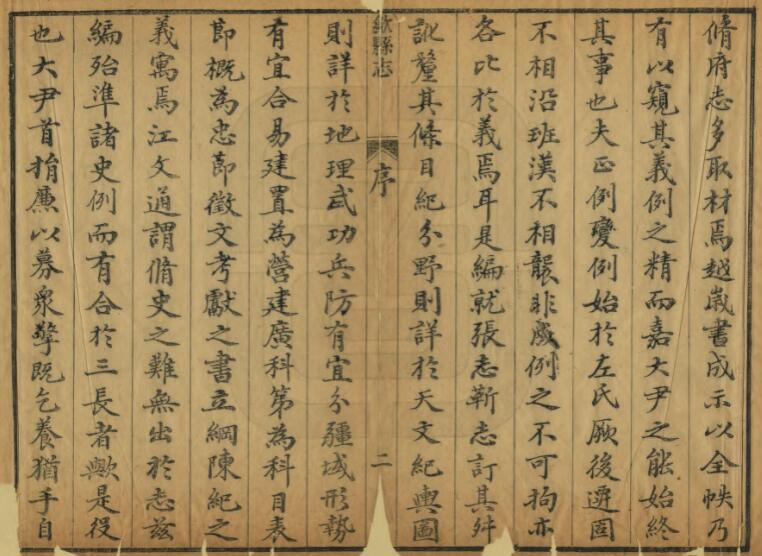 脩府志多取材焉越嵗書成示以全帙乃
有以窺其義例之精而嘉大尹之能始終
其事也夫正例變例始於左氏厥後選固
不相沿班漢不相襲非成例之不可拘亦
各比於義焉耳是編就張志靳志訂其舛
訛釐其條目紀分野則詳於天文紀輿圖
歙縣志
序
二
則詳於地理武功兵防有宜分疆域形勢
有宜合易建置為營建廣科第為科目表
節概為忠節徵文考獻之書立綱陳紀之
義寓焉江文通謂脩史之難無出於志茲
編殆準諸史例而有合於三長者歟是役
也大尹首捐廉以募衆擎既乞養猶手自